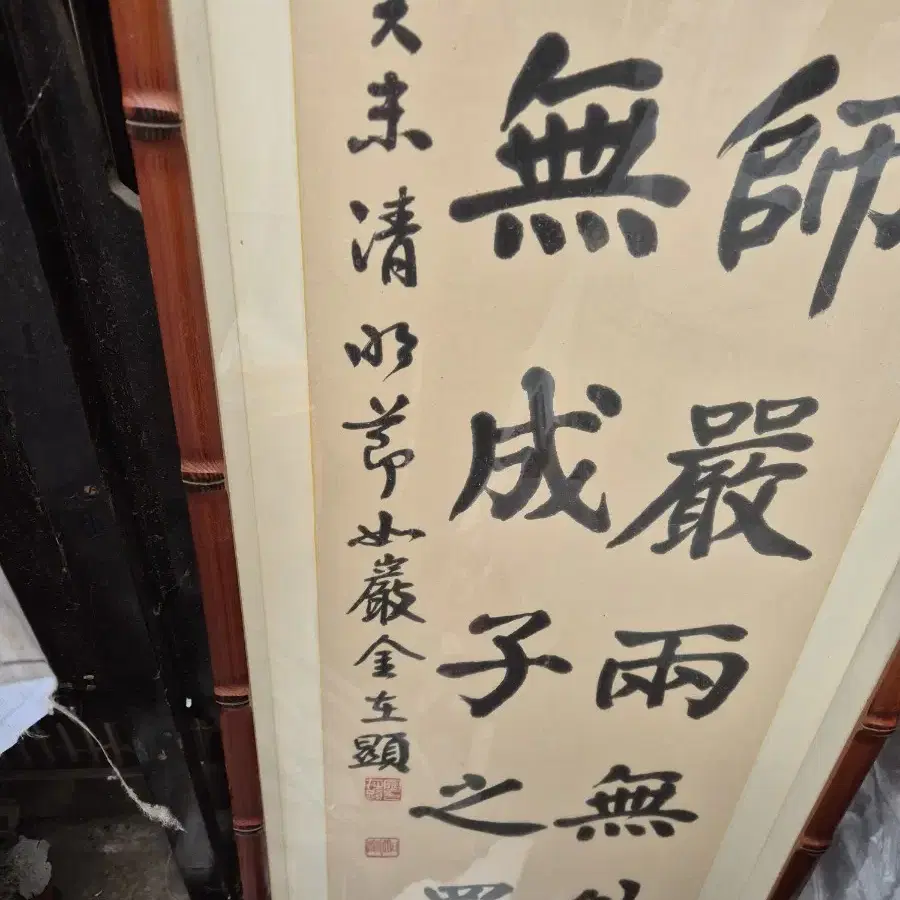 師嚴兩無
無成子之
未清明節如巖金在顯